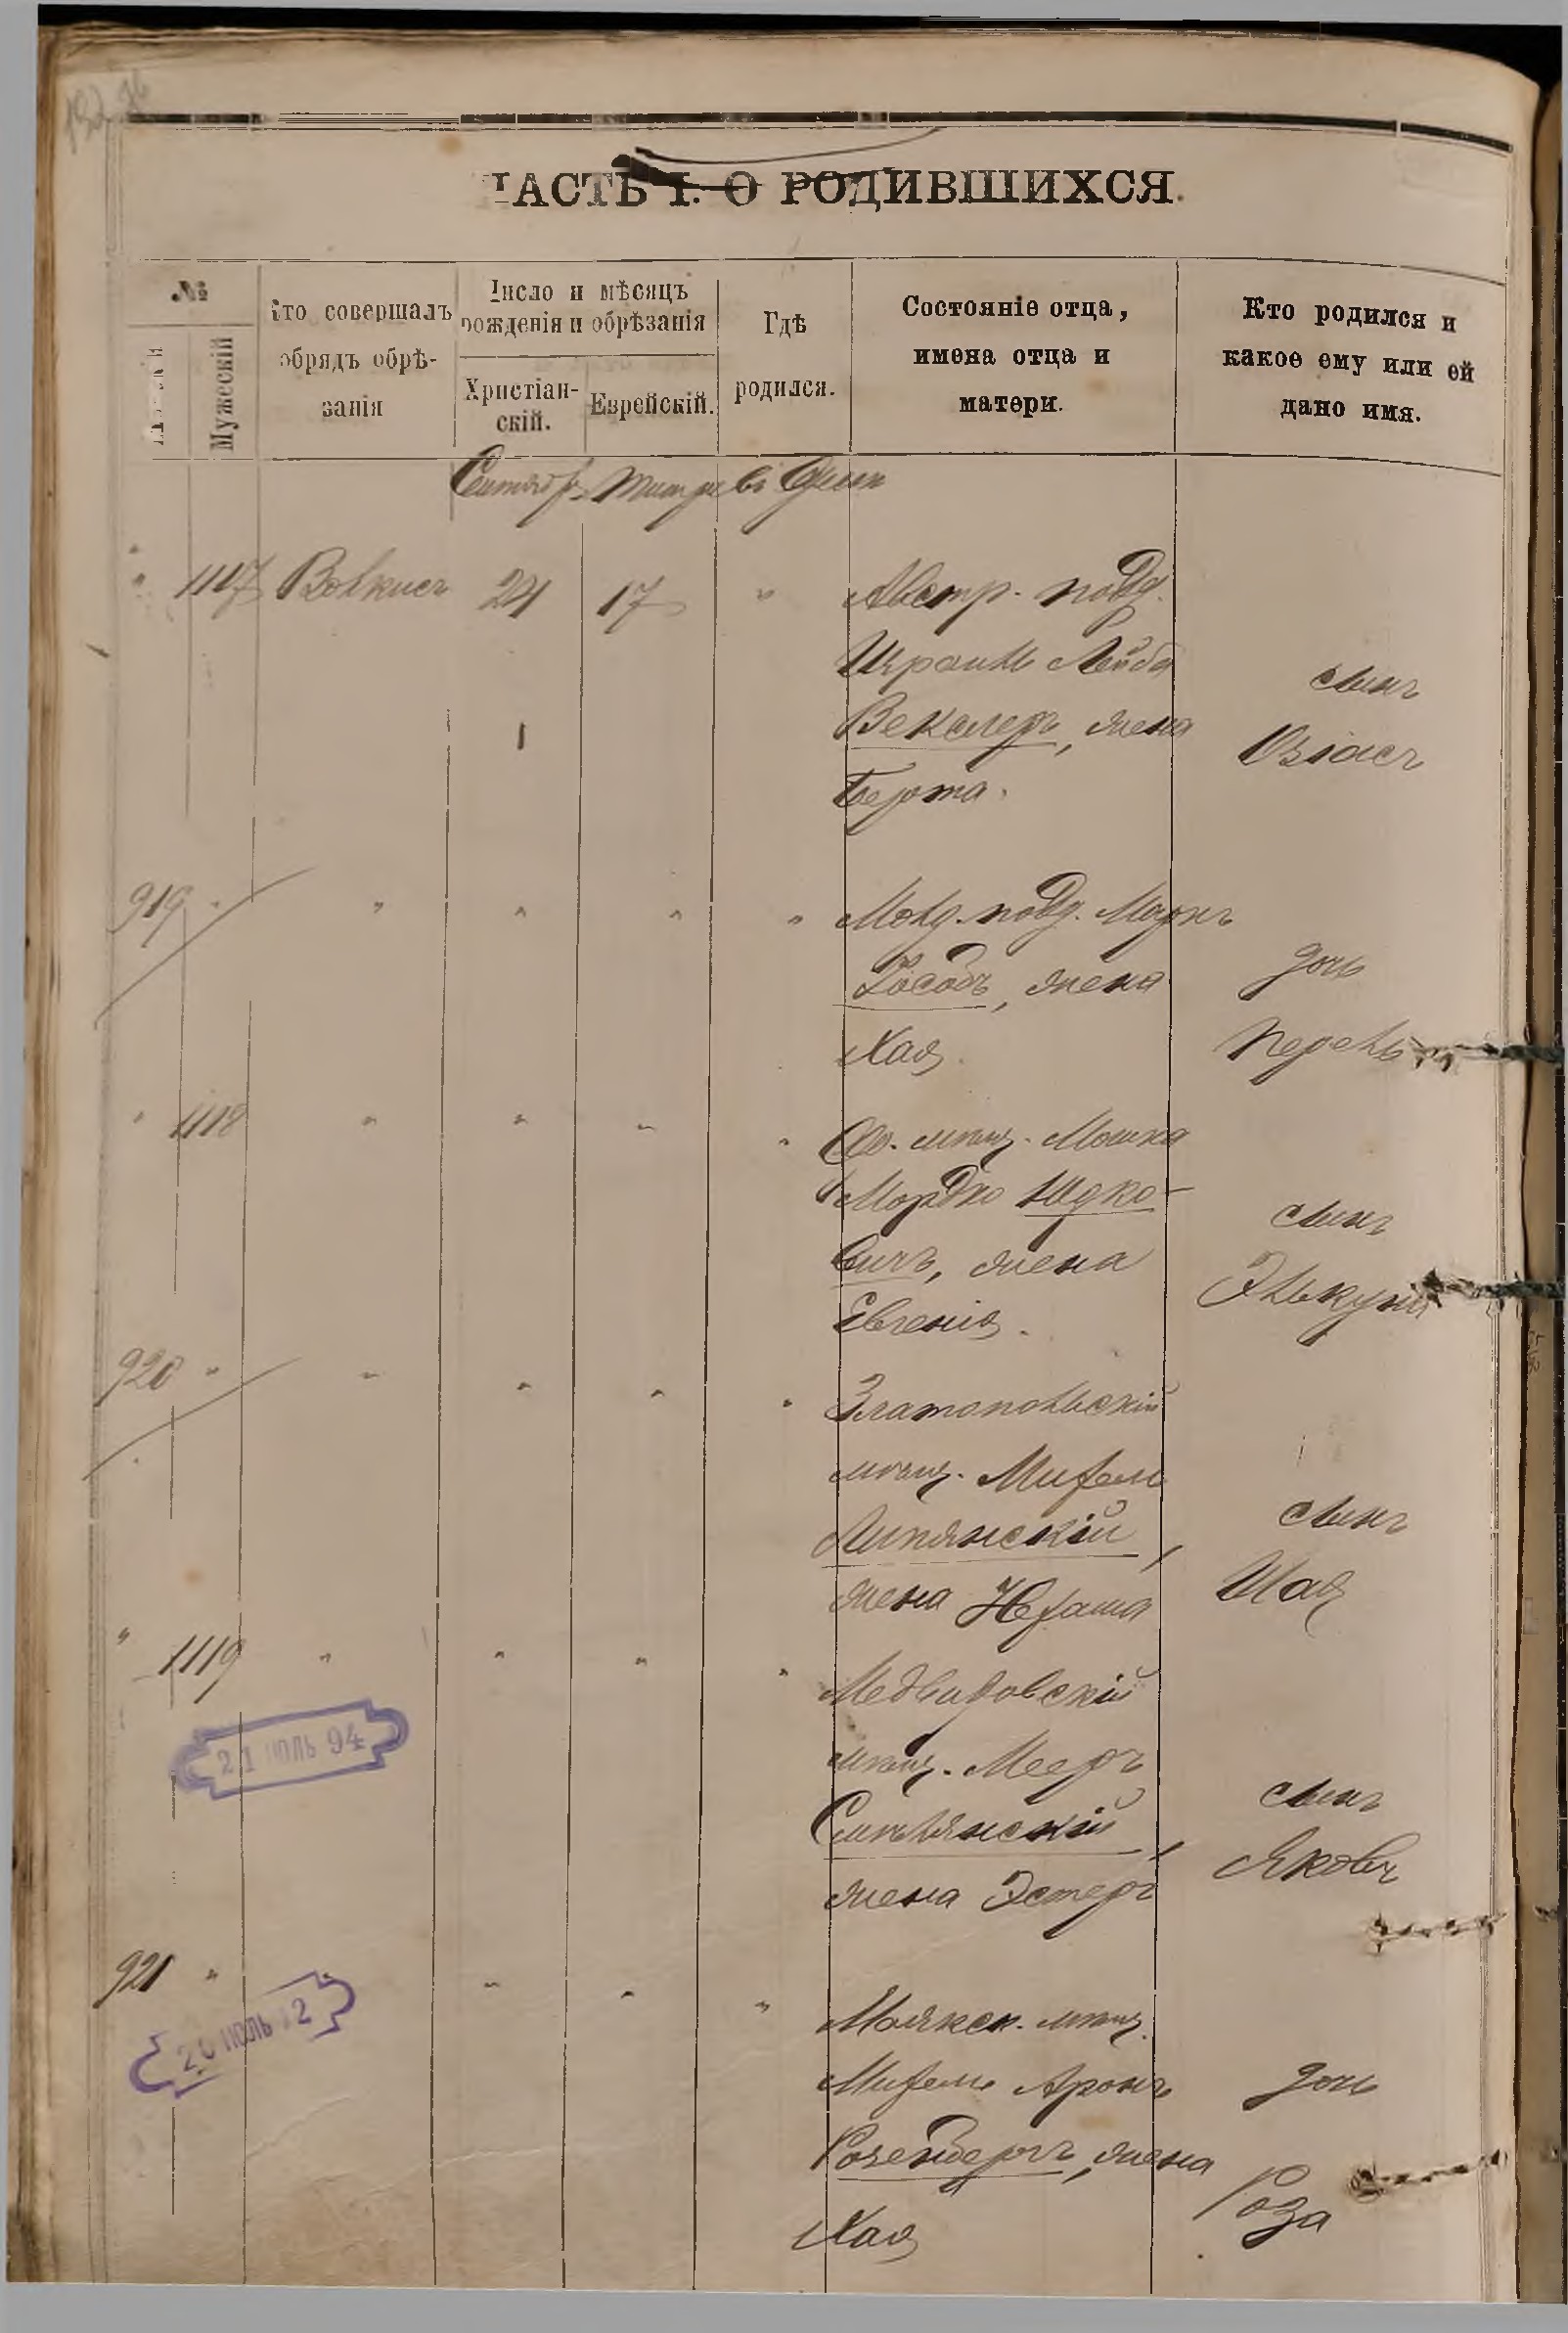 ЧАСТЬ I. О РОДИВШИХСЯ.
№
Мужескій
Кто совершалъ обрядъ обрѣ-занія
Число и мѣсяцъ рожденія и обрѣзанія
Христіан-скій.
Еврейскій.
Гдѣ родился.
Состояніе отца, имена отца и матери.
Кто родился и какое ему или ей дано имя.
Сентябр. Тишри въ Одесѣ
" 1117 Волкисъ 24 17 " Австр. подд.
Шраимъ Лейба
Векслеръ, жена
Берта.
сынъ
Озіасъ
919 " " " " " Молд. подд. Маркъ
Іосовъ, жена
Хая.
дочь
Перель
" 1118 " " " " Од. мѣщ. Мошка
Мордко Юдко-
вичъ, жена
Евгенія.
сынъ
Элькуна
920 " " " " " Златопольскій
мѣщ. Михель
Липянскій,
жена Нехама
сынъ
Шая
" 1119 " " " " Медвидовскій
мѣщ. Мееръ
Смѣлянскій,
жена Эстеръ
сынъ
Яковъ
21 ІЮЛЬ 94
921 " " " " Маякск. мѣщ.
Михель Аронъ
Розенбергъ, жена
Хая
дочь
Роза
ІЮЛЬ